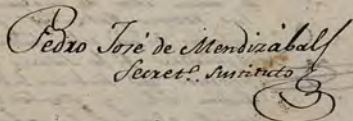 Pedro José de Mendizábal
Secret.º Sustituto